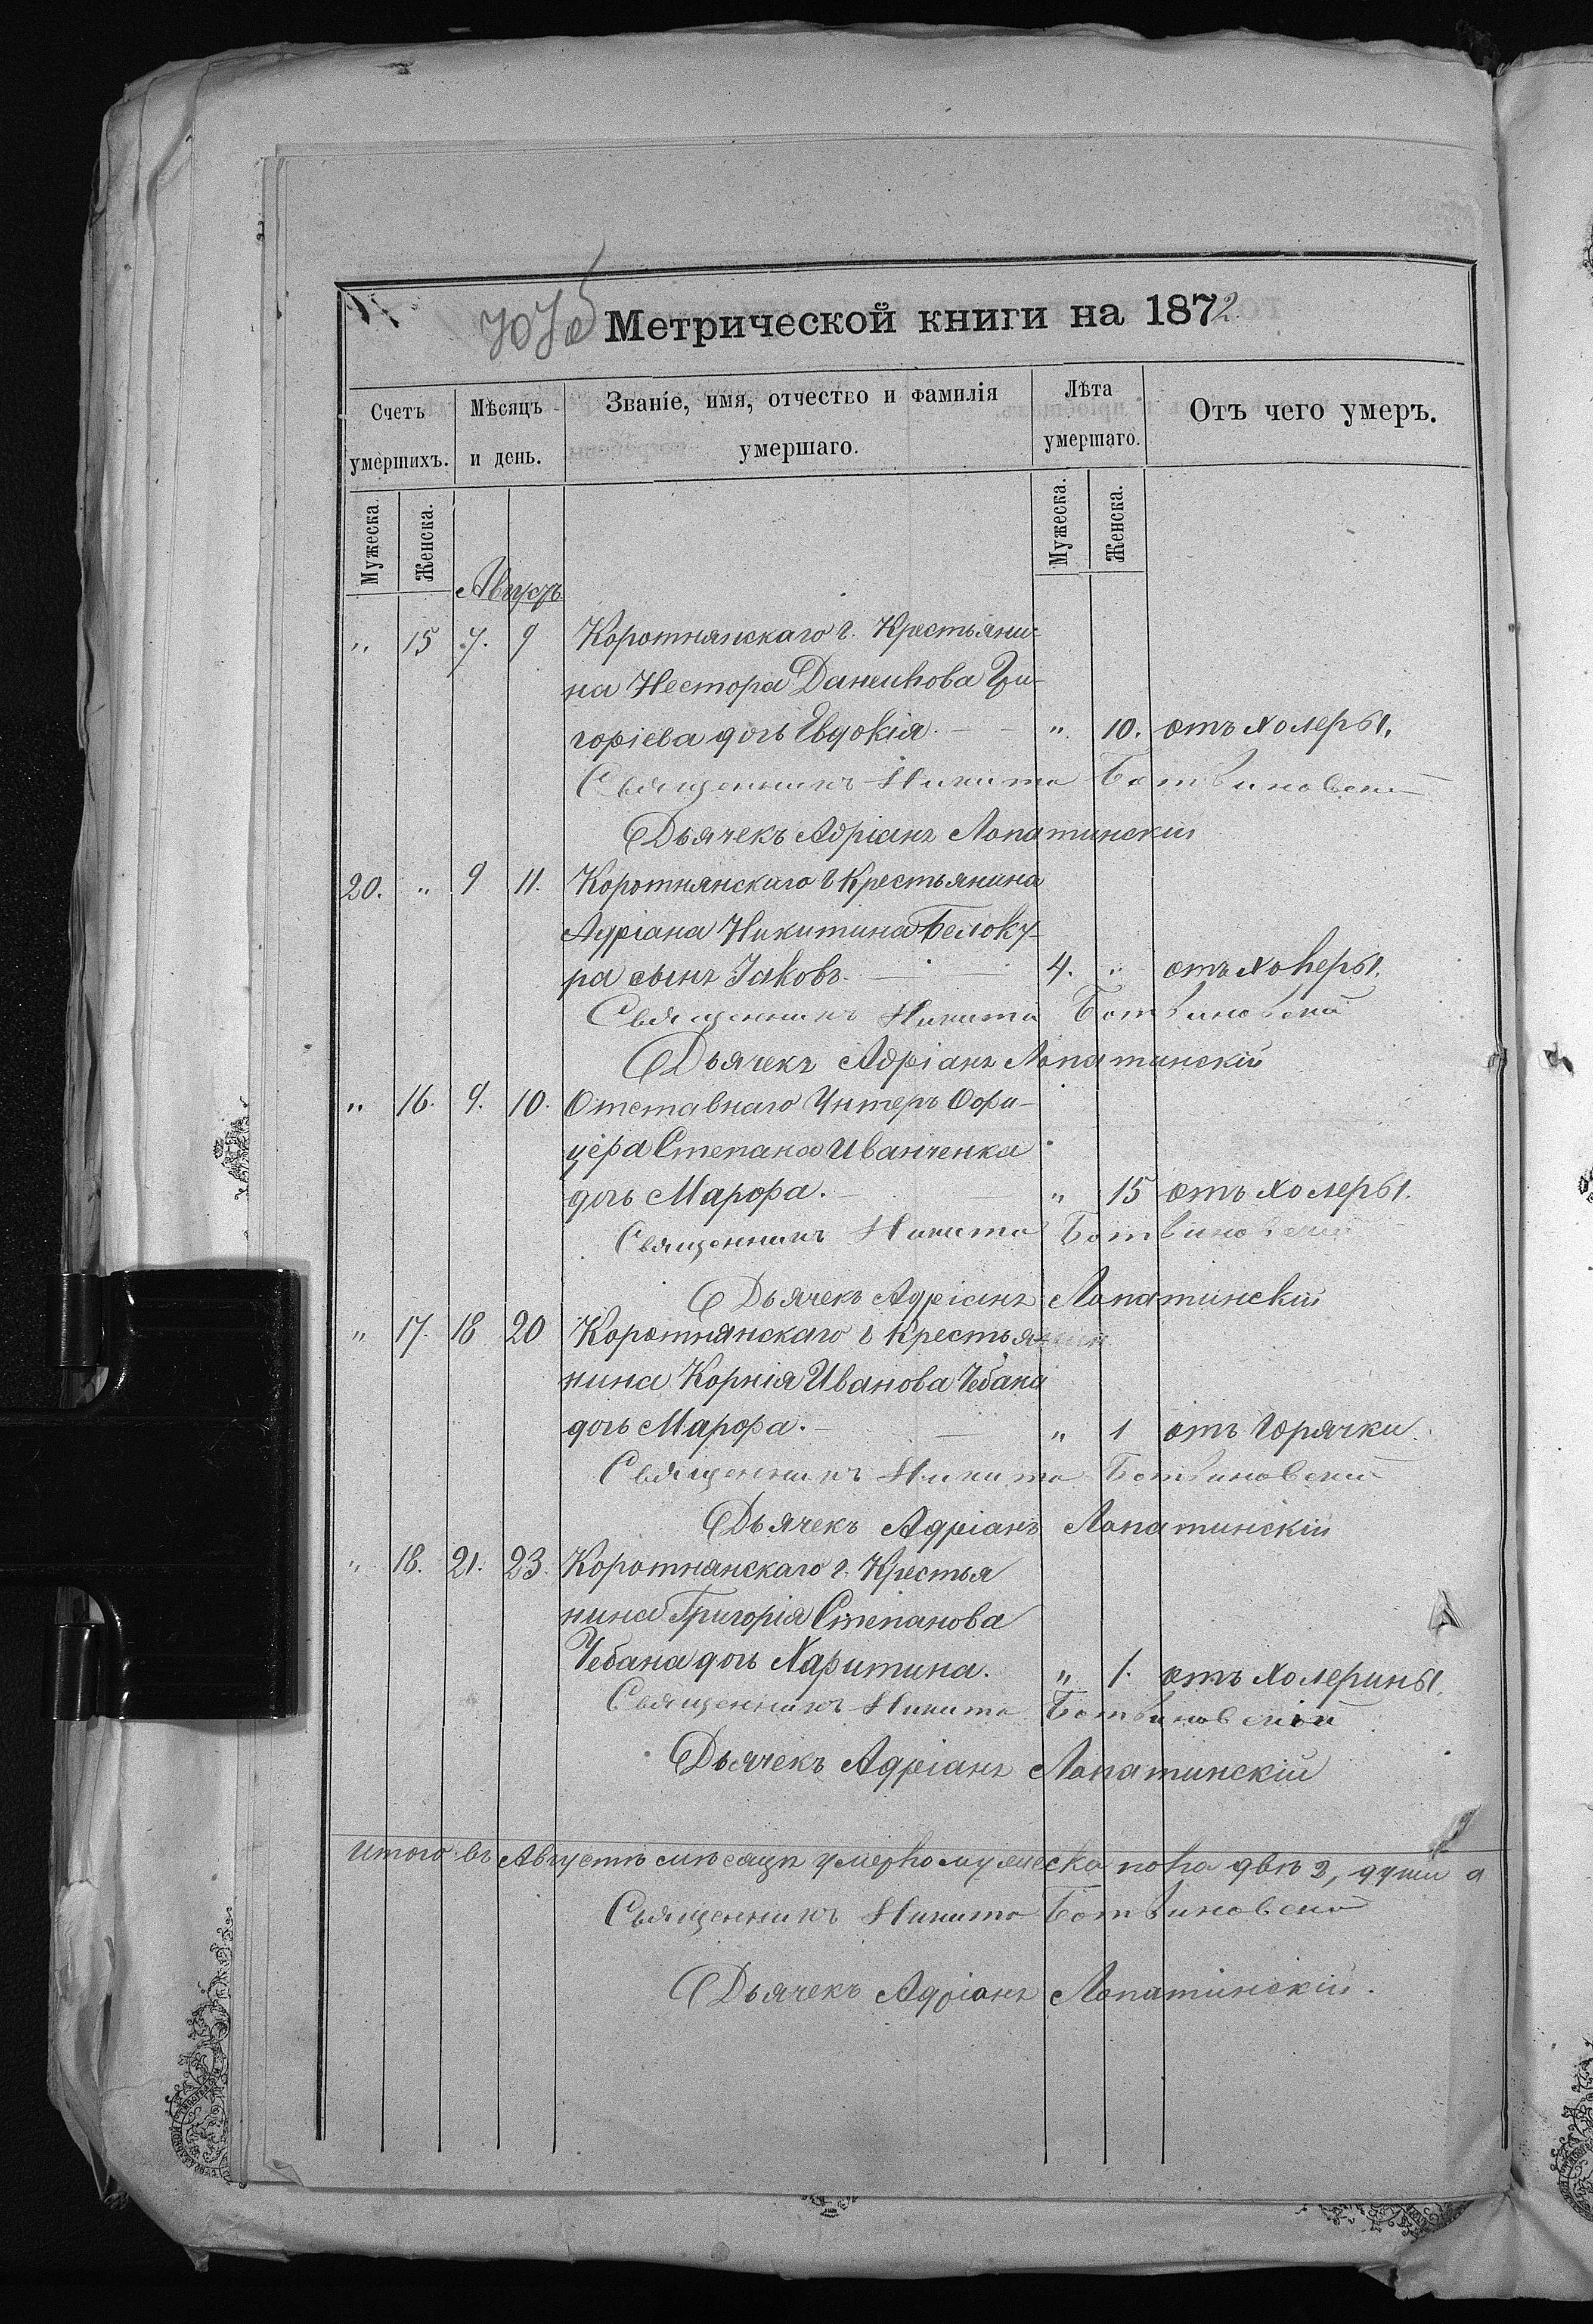 Метрической книги на 1872
Счетъ умершихъ. Мѣсяцъ и день. Званіе, имя, отчество и фамилія умершаго. Лѣта умершаго. Отъ чего умеръ.
Мужеска. Женска. Мужеска. Женска.
Августъ
" 15 7. 9 Коротнянскаго г. Крестьяни-
на Нестора Данилова Гри-
горіева дочь Евдокія. " 10. отъ холеры.
Священникъ Никита Ботвиновскій
Дьячекъ Адріанъ Лопатинскій
20. " 9 11. Коротнянскаго г Крестьянина
Адріана Никитина Белоку-
ра сынъ Іаковъ. 4. " отъ холеры.
Священникъ Никита Ботвиновскій
Дьячекъ Адріанъ Лопатинскій
" 16. 9. 10. Отставнаго Унтеръ Офи-
цера Степана Иванченка
дочь Марфа. " 15 отъ холеры.
Священникъ Никита Ботвиновскій
Дьячекъ Адріанъ Лопатинскій
" 17. 18 20 Коротнянскаго г Крестья-
нина Корнія Иванова Чебана
дочь Марфа. " 1 отъ Горячки.
Священникъ Никита Ботвиновскій
Дьячекъ Адріанъ Лопатинскій
" 18. 21. 23. Коротнянскаго г. Крестья
нина Григорія Степанова
Чебана дочь Харитина. " 1. отъ холерины.
Священникъ Никита Ботвиновскій
Дьячекъ Адріанъ Лопатинскій
Итого въ Августѣ мѣсяцѣ умерло мужеска пола двѣ 2, души а
Священникъ Никита Ботвиновскій
Дьячекъ Адріанъ Лопатинскій.